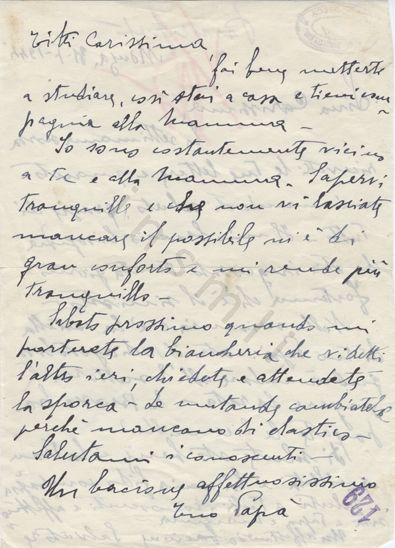 Titti Carissima
fai bene metterti
a studiare, così stai a casa e tieni com
pagnia alla Mamma –
Io sono costantemente vicino
a te e alla Mamma. Sapervi
tranquille e che non vi lasciate
mancare il possibile mi è di
gran conforto e mi rende più
tranquillo –
Sabato prossimo quando mi
porterete la biancheria che vi detti
l'altro ieri, chiedete e attendete
la sporca – Le mutande cambiatele
perché mancano di elastico –
Salutami i conoscenti –
Un bacione affettuosissimo
tuo Papà
129